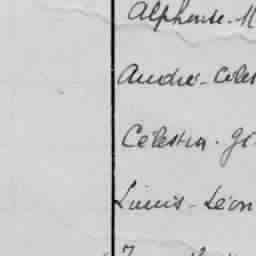 Alphonse-M
André-Céles
Célestin-Gé
Louis-Léon